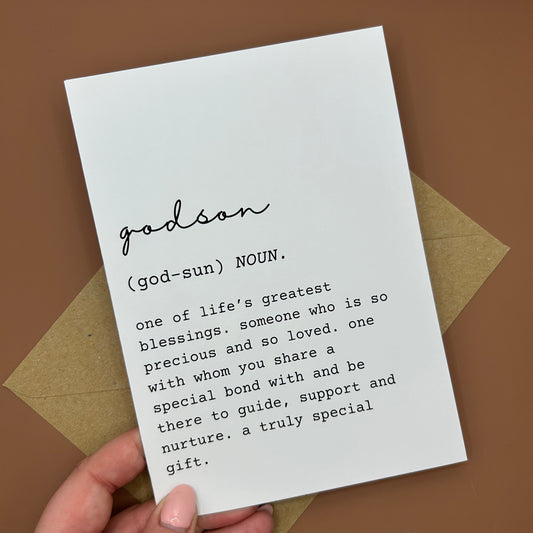 godson
(god-sun) NOUN.
one of life's greatest
blessings. someone who is so
precious and so loved. one
with whom you share a
special bond with and be
there to guide, support and
nurture. a truly special
gift.